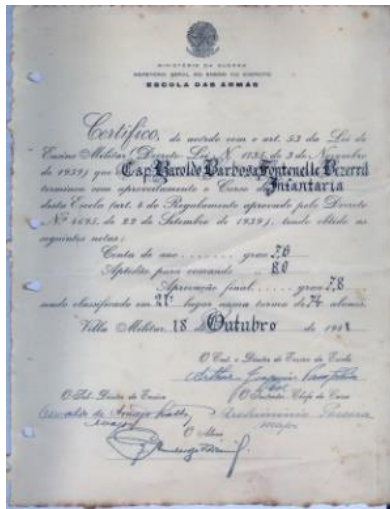 MINISTÉRIO DA GUERRA
INSPETORIA GERAL DO ENSINO DO EXERCITO
ESCOLA DAS ARMAS
Certifico, de acordo com o art. 53 da Lei do
Ensino Militar (Decreto-Lei N. 1735, de 3 de Novembro
de 1939) que Cap. Haroldo Barbosa Fontenelle Bizerril
terminou com aproveitamento o Curso de Infantaria
desta Escola (art. 8 do Regulamento aprovado pelo Decreto
N.º 4695, de 22 de Setembro de 1939), tendo obtido as
seguintes notas:
Conta de ano grau 7,6
Aptidão para comando " 8,0
Aprovação final grau 7,8
sendo classificado em 21º lugar numa turma de 74 alunos.
Villa Militar, 18 de Outubro de
O Cmt. e Diretor do Ensino da Escola
O Sub-Diretor do Ensino
O Instrutor Chefe do Curso
major
O Aluno